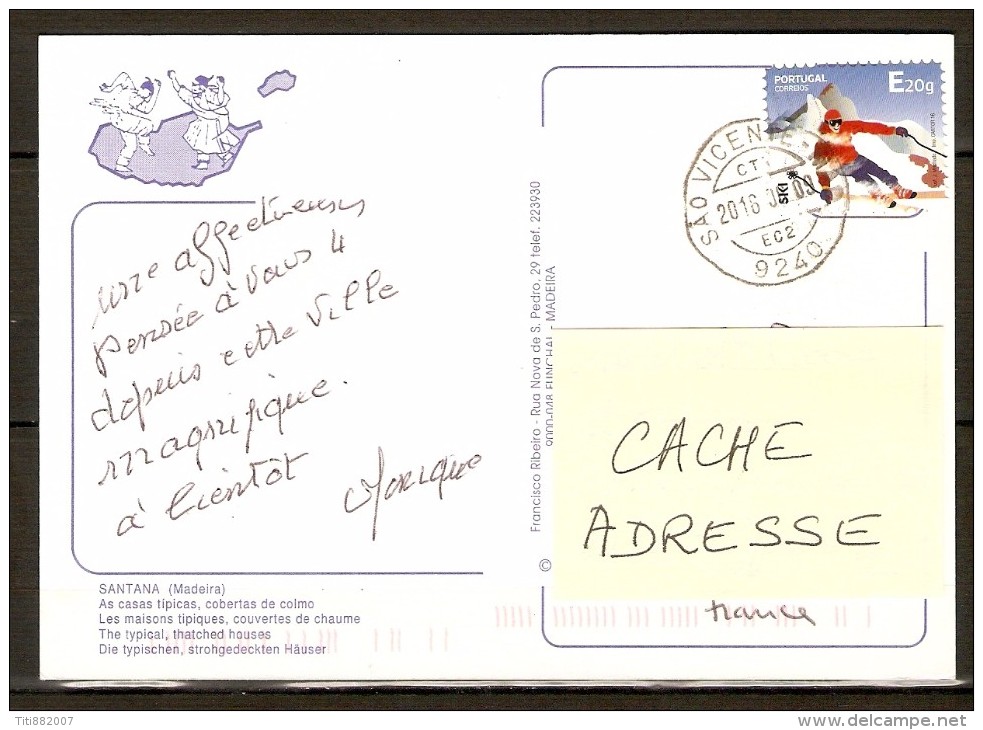 PORTUGAL
CORREIOS
E20g
SKI
SÃO VICENTE
CTT
2016
09
EC2
9240
une affectueuse
pensée à vous 4
depuis cette ville
magnifique.
à bientôt
Monique
Francisco Ribeiro - Rua Nova de S. Pedro, 29 telef. 223930
9000-048 FUNCHAL - MADEIRA
©
CACHE
ADRESSE
France
SANTANA (Madeira)
As casas típicas, cobertas de colmo
Les maisons tipiques, couvertes de chaume
The typical, thatched houses
Die typischen, strohgedeckten Häuser
Titi882007
delcampe.net